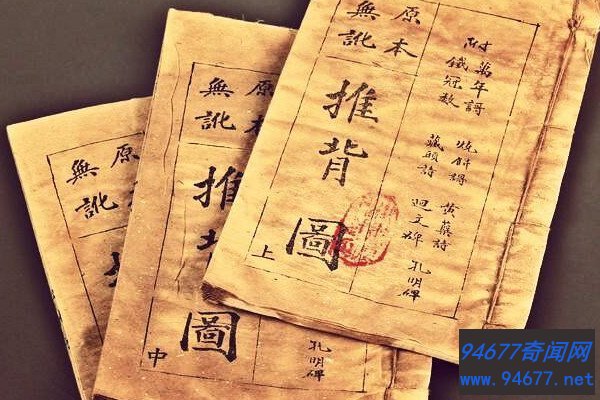 附
萬年謌 燒餅謌 黃蘗詩 孔明碑
鐵冠數 藏頭詩
原本
無訛
推背圖
上
孔明碑
原本
無訛
推背圖
中
原本
無訛
94677奇闻网
www.94677.net